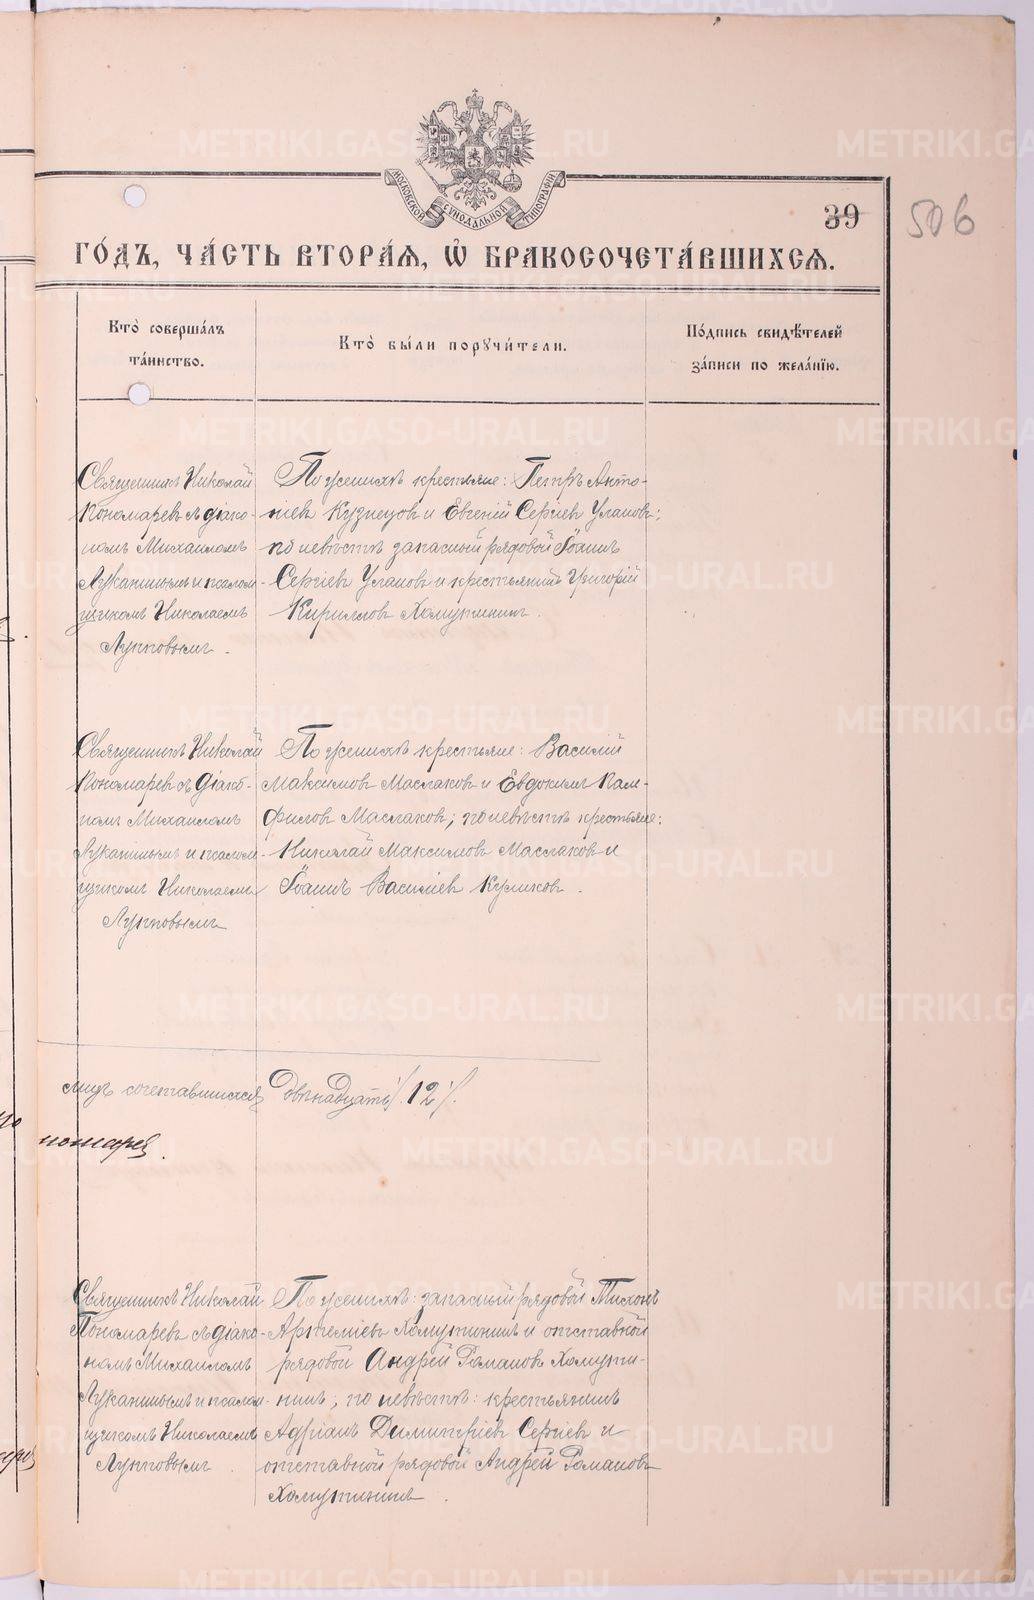 МОСКОВСКОЙ СѴНОДАЛЬНОЙ ТИПОГРАФІИ
39
506
ГО́ДЪ, ЧА́СТЬ ВТОРА́Ѧ, Ѽ БРАКОСОЧЕТА́ВШИХСѦ.
Кто̀ соверша́лъ
та́инство.
Кто̀ бы́ли порꙋчи́тели.
По́дпись свидѣ́телей
за́писи по жела́нїю.
Священникъ Николай
Пономаревъ съ діако-
номъ Михаиломъ
Луканинымъ и псалом-
щикомъ Николаемъ
Лупповымъ.
По женихѣ крестьяне: Петръ Анто-
ніевъ Кузнецовъ и Евгеній Сергіевъ Улановъ;
по невѣстѣ запасный рядовой Іоаннъ
Сергіевъ Улановъ и крестьянинъ Григорій
Кирилловъ Хомутининъ.
Священникъ Николай
Пономаревъ съ діако-
номъ Михаиломъ
Луканинымъ и псалом-
щикомъ Николаемъ
Лупповымъ
По женихѣ крестьяне: Василій
Максимовъ Маслаковъ и Евдокимъ Пам-
филовъ Маслаковъ; по невѣстѣ крестьяне:
Николай Максимовъ Маслаковъ и
Іоаннъ Василіевъ Куликовъ.
лицъ сочетавшихся двѣнадцать /. 12 /.
Священникъ Николай
Пономаревъ съ діако-
номъ Михаиломъ
Луканинымъ и псалом-
щикомъ Николаемъ
Лупповымъ.
По женихѣ: запасный рядовой Тихонъ
Артеміевъ Хомутининъ и отставной
рядовой Андрей Романовъ Хомути-
нинъ; по невѣстѣ: крестьянинъ
Адріанъ Димитріевъ Сергіевъ и
отставной рядовой Андрей Романовъ
Хомутининъ.
METRIKI.GASO-URAL.RU